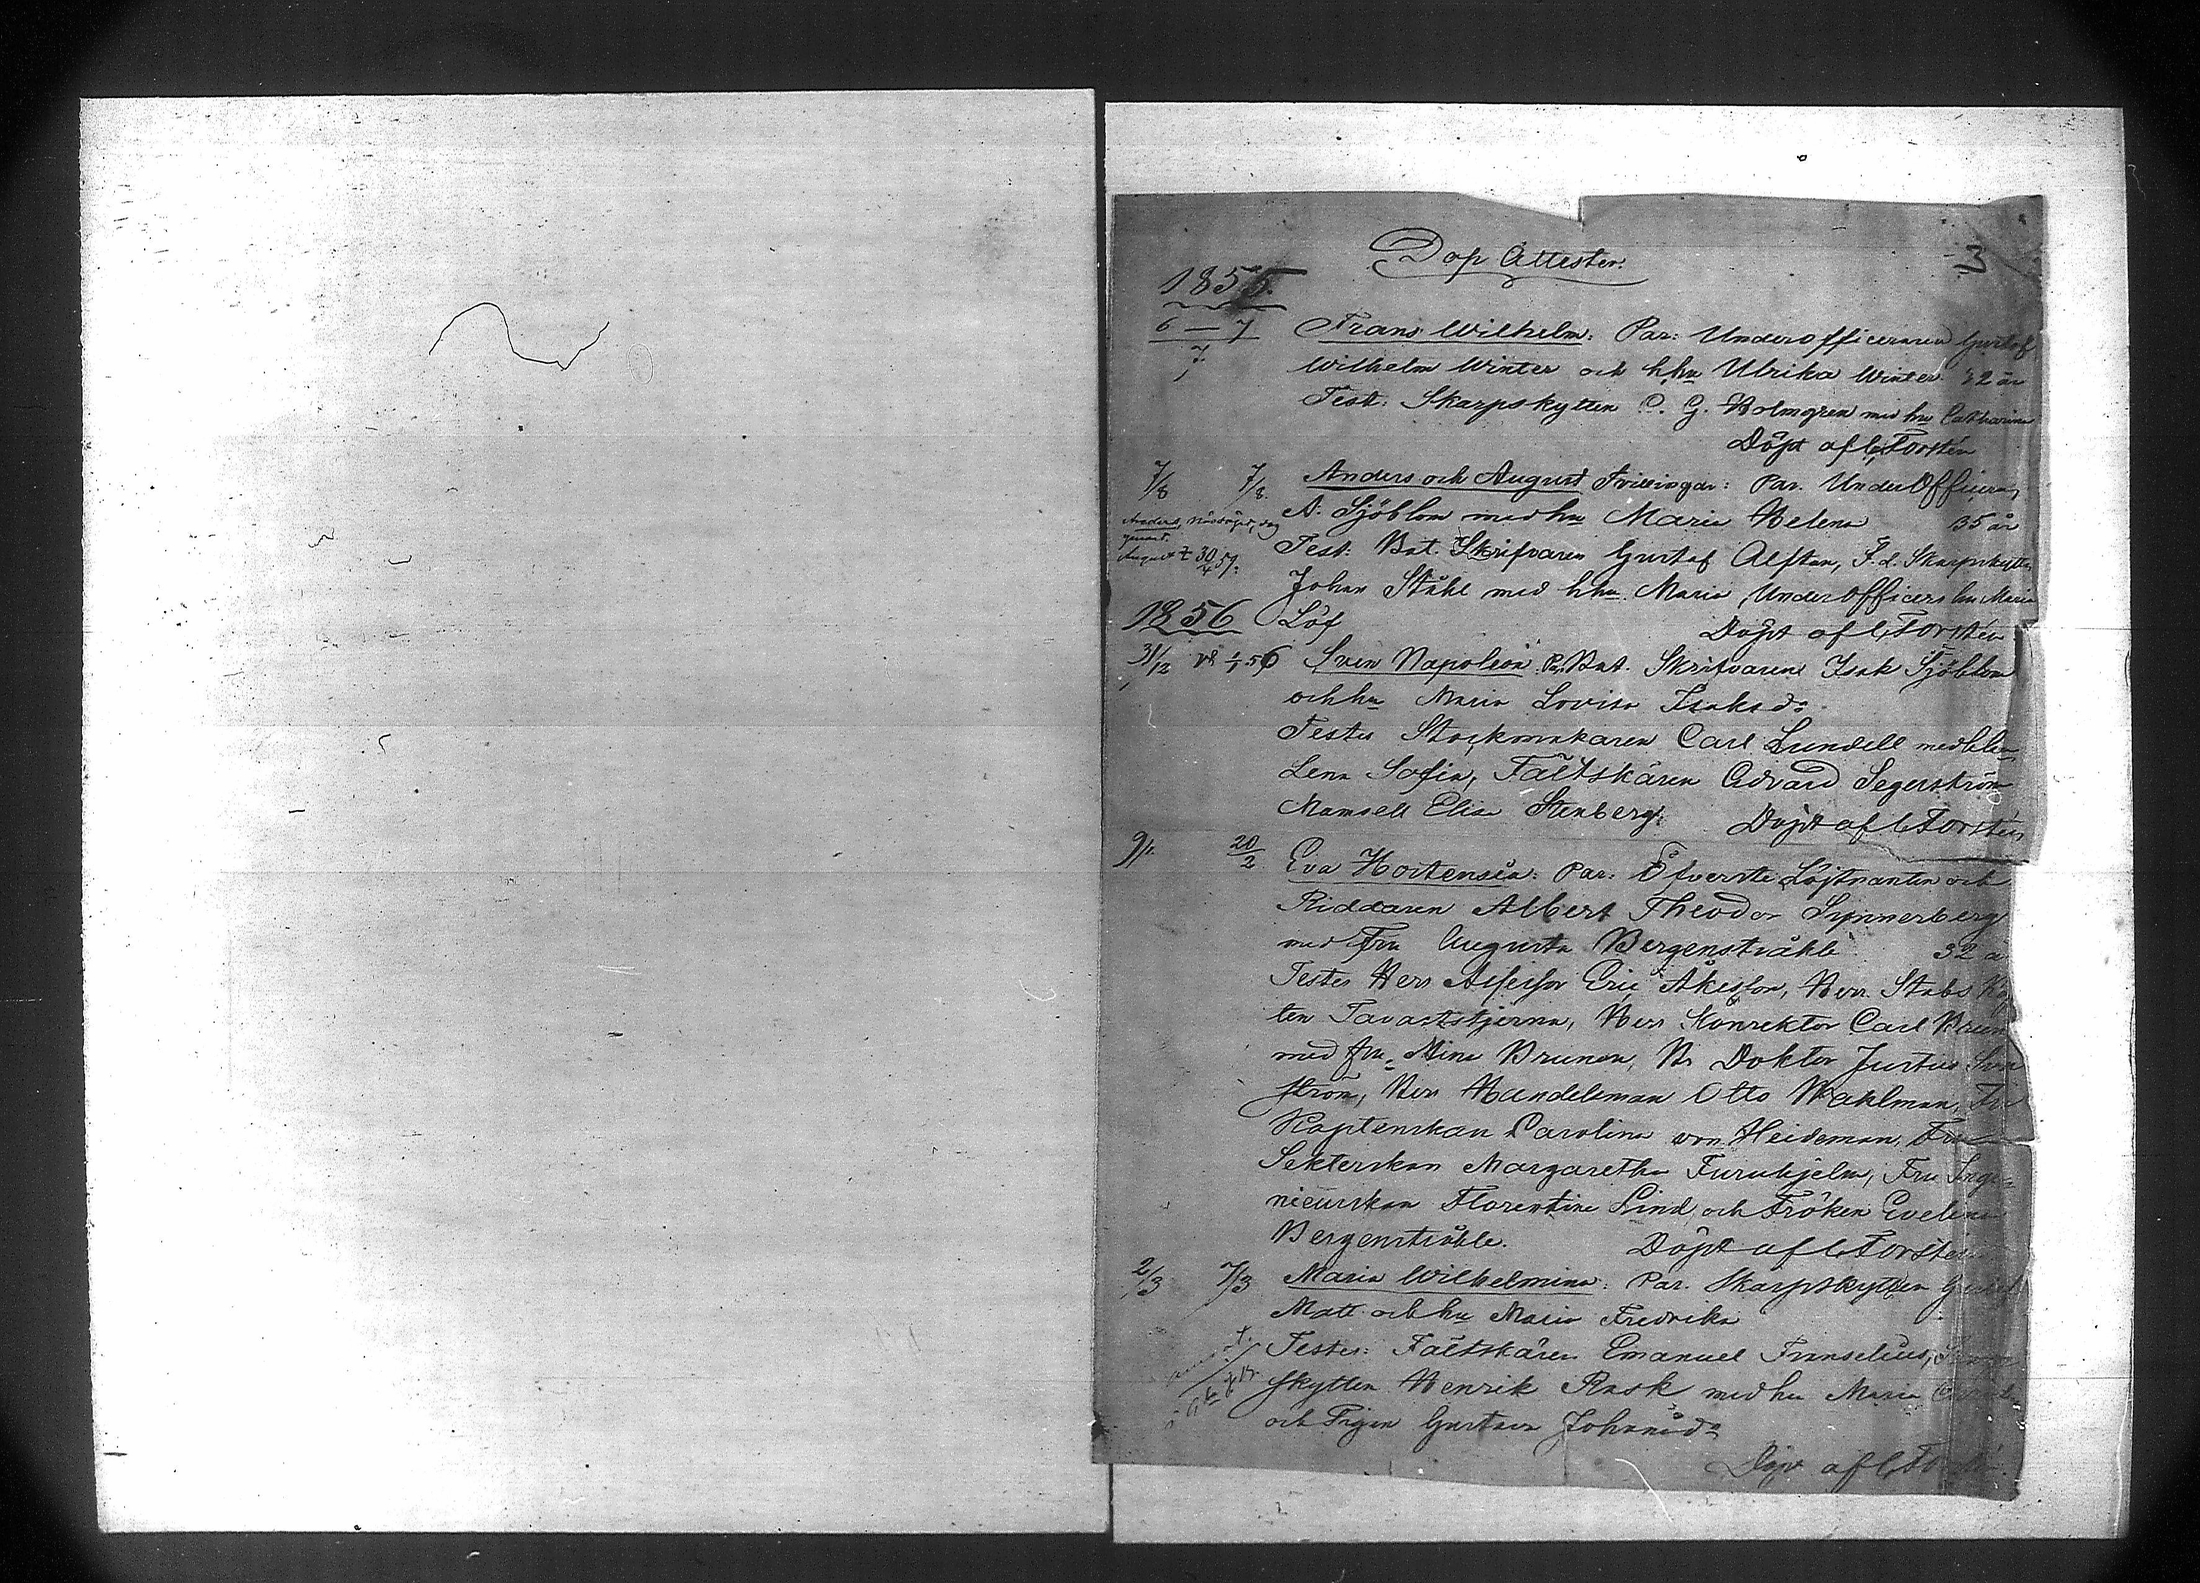 Dop Attester. 3
1855.
6 — 7 Frans Wilhelm: Par: Underofficeraren Gustaf
7 Wilhelm Winter och hhu Ulrika Winter 32 år
Test: Skarpskytten C. G. Holmgren med hu Catharina
Döpt af C, Forstén
7/8 7/8. Anders och August Trillingar: Par. UnderOfficern
A: Sjöblom med hu Maria Helena 35 år
Anders, nöddöpt, dog
genast.
August † 30/4 57.
Test: Bat. Skrifvaren Gustaf Alftan, F. d. Skarpskytten
Johan Ståhl med hhu Maria, Underofficers hu Maria
1856 Löf Döpt af C, Forstén
31/12 1/1 56 Sven Napoleon. Par. Bat. Skrifvaren Isak Sjöblom
och hu Maria Lovisa Isaksd:
Testes Stockmakaren Carl Lundell med hhu
Lena Sofia, Fältskären Edvard Segerström
Mamsell Elisa Stenberg. Döpt af C Forstén
9/1. 20/2 Eva Hortensia: Par: Öfverste Löjtnanten och
Riddaren Albert Theodor Synnerberg
med Fru Augusta Bergenstråhle 32 å
Testes Herr Assessor Eric Åkesson, Herr Stabs Kap
ten Tavaststjerna, Herr Konrektor Carl Brun
med fru Mina Brunou, Hr Doktor Justus
ström, Herr Handelsman Otto Wahlman, Fru
Kaptenskan Carolina von Heideman, Fru
Sekterskan Margaretha Furuhjelm, Fru Inge-
nieurskan Florentine Lind, och Fröken Evelina
Bergenstråhle. Döpt af C Forstén
2/3 7/3 Maria Wilhelmina: Par. Skarpskytten Gustaf
Matt och hu Maria Fredrika
Testes: Fältskären Emanuel Franselius,
skytten Henrik Rask med hu Maria
och Pigan Gustava Johansd:
Döpt af C, Forstén